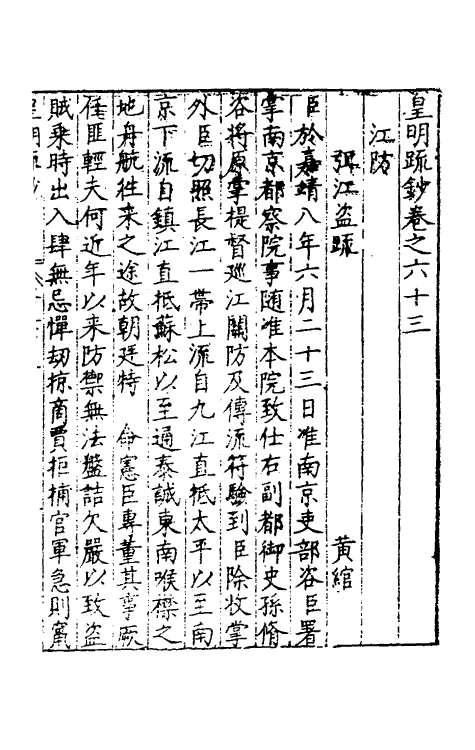 皇明疏鈔卷之六十三
江防
弭江盜疏 黃綰
臣於嘉靖八年六月二十三日准南京吏部咨臣署
掌南京都察院事隨准本院致仕右副都御史孫脩
咨將原掌提督巡江關防及傳流符驗到臣除收掌
外臣切照長江一帶上流自九江直抵太平以至南
京下流自鎮江直抵蘇松以至通泰誠東南喉襟之
地舟航往来之途故朝廷特 命憲臣專董其事厥
任匪輕夫何近年以来防禦無法盤詰欠嚴以致盜
賊乘時出入肆無忌憚劫掠商賈拒捕官軍急則竄